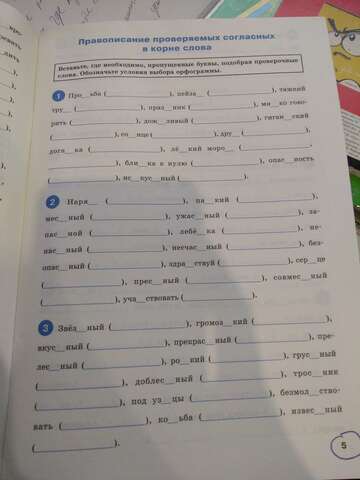 Правописание проверяемых согласных
в корне слова
Вставьте, где необходимо, пропущенные буквы, подобрав проверочные
слова. Обозначьте условия выбора орфограммы.
1 Про__ьба (__________), пейза__ (__________), тяжкий
тру__ (__________), праз__ник (__________), мя__ко гово-
рить (__________), дож__ливый (__________), гиган__ский
(__________), со__нце (__________), дру__ (__________),
дога__ка (__________), лё__кий моро__ (__________,
__________), бли__ка к нулю (__________), опас__ность
(__________), ис__кус__ный (__________).
2 Наря__ (__________), па__кий (__________),
мес__ный (__________), ужас__ный (__________), за-
пас__ной (__________), лебё__ка (__________), не-
нас__ный (__________), несчас__ный (__________), без-
опас__ный (__________), здра__ствуй (__________), сер__це
(__________), прес__ный (__________), совмес__ный
(__________), уча__ствовать (__________).
3 Звёз__ный (__________), громоз__кий (__________),
вкус__ный (__________), прекрас__ный (__________), пре-
лес__ный (__________), ро__кий (__________), грус__ный
(__________), доблес__ный (__________), трос__ник
(__________), под уз__цы (__________), безмолс__во-
вать (__________), ко__ьба (__________), извес__ный
(__________).
5